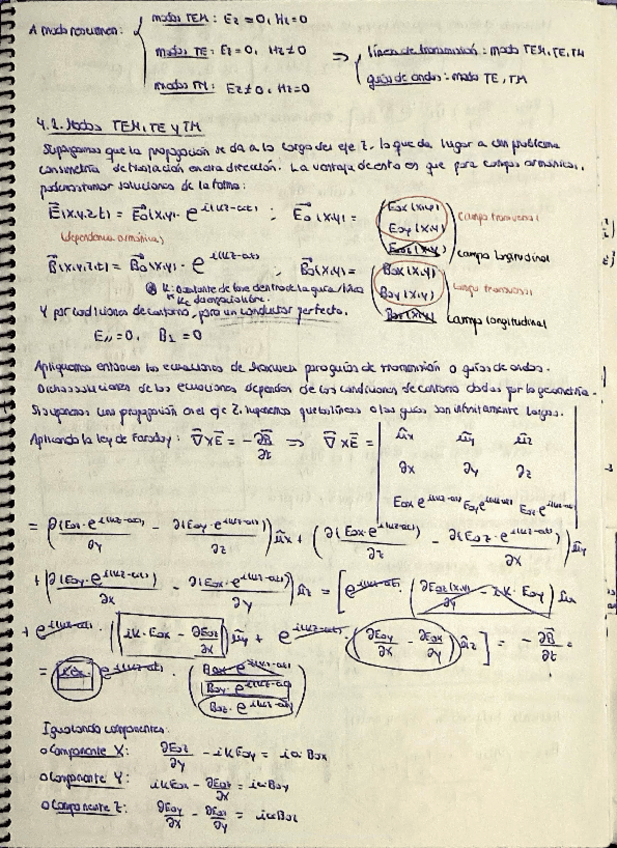 A modo resumen: modos TEM: Ez = 0, Hz = 0
modos TE: Ez = 0, Hz ≠ 0
modos TM: Ez ≠ 0, Hz = 0
⇒ línea de transmisión: modo TEM, TE, TM
guías de ondas: modo TE, TM
4.2. Modos TEM, TE y TM
Supongamos que la propagación se da a lo largo del eje Z, lo que da lugar a un problema
con simetría de traslación en una dirección. La ventaja de esto es que para campos armónicos,
podemos tomar soluciones de la forma:
E(x,y,z,t) = E0(x,y) · e^{i(kz-ωt)} ; E0(x,y) = (E0x(x,y) E0y(x,y) E0z(x,y)) campo transversal campo longitudinal
(dependencia armónica)
B(x,y,z,t) = B0(x,y) · e^{i(kz-ωt)} ; B0(x,y) = (B0x(x,y) B0y(x,y) B0z(x,y)) campo transversal campo longitudinal
K: constante de fase dentro de la guía/línea
Y por condiciones de contorno, para un conductor perfecto.
E∥ = 0, B⊥ = 0
Apliquemos entonces las ecuaciones de Maxwell para guías de transmisión o guías de ondas.
Dichas soluciones de las ecuaciones dependen de las condiciones de contorno dadas por la geometría.
Si suponemos una propagación en el eje Z, suponemos que las líneas o las guías son infinitamente largas.
Aplicando la ley de Faraday: ∇×E = -∂B/∂t ⇒ ∇×E = | ûx ûy ûz
∂x ∂y ∂z
E0x e^{i(kz-ωt)} E0y e^{i(kz-ωt)} E0z e^{i(kz-ωt)} |
= (∂(E0z·e^{i(kz-ωt)})/∂y - ∂(E0y·e^{i(kz-ωt)})/∂z) ûx + (∂(E0x·e^{i(kz-ωt)})/∂z - ∂(E0z·e^{i(kz-ωt)})/∂x) ûy
+ (∂(E0y·e^{i(kz-ωt)})/∂x - ∂(E0x·e^{i(kz-ωt)})/∂y) ûz = [e^{i(kz-ωt)} · (∂E0z(x,y)/∂y - iK·E0y) ûx
+ e^{i(kz-ωt)} · (iK·E0x - ∂E0z/∂x) ûy + e^{i(kz-ωt)} · (∂E0y/∂x - ∂E0x/∂y) ûz] = -∂B/∂t =
= iω · e^{i(kz-ωt)} · (B0x·e^{i(kz-ωt)} B0y·e^{i(kz-ωt)} B0z·e^{i(kz-ωt)})
Igualando componentes:
o Componente X: ∂E0z/∂y - iKE0y = iω B0x
o Componente Y: iKE0x - ∂E0z/∂x = iωB0y
o Componente Z: ∂E0y/∂x - ∂E0x/∂y = iωB0z